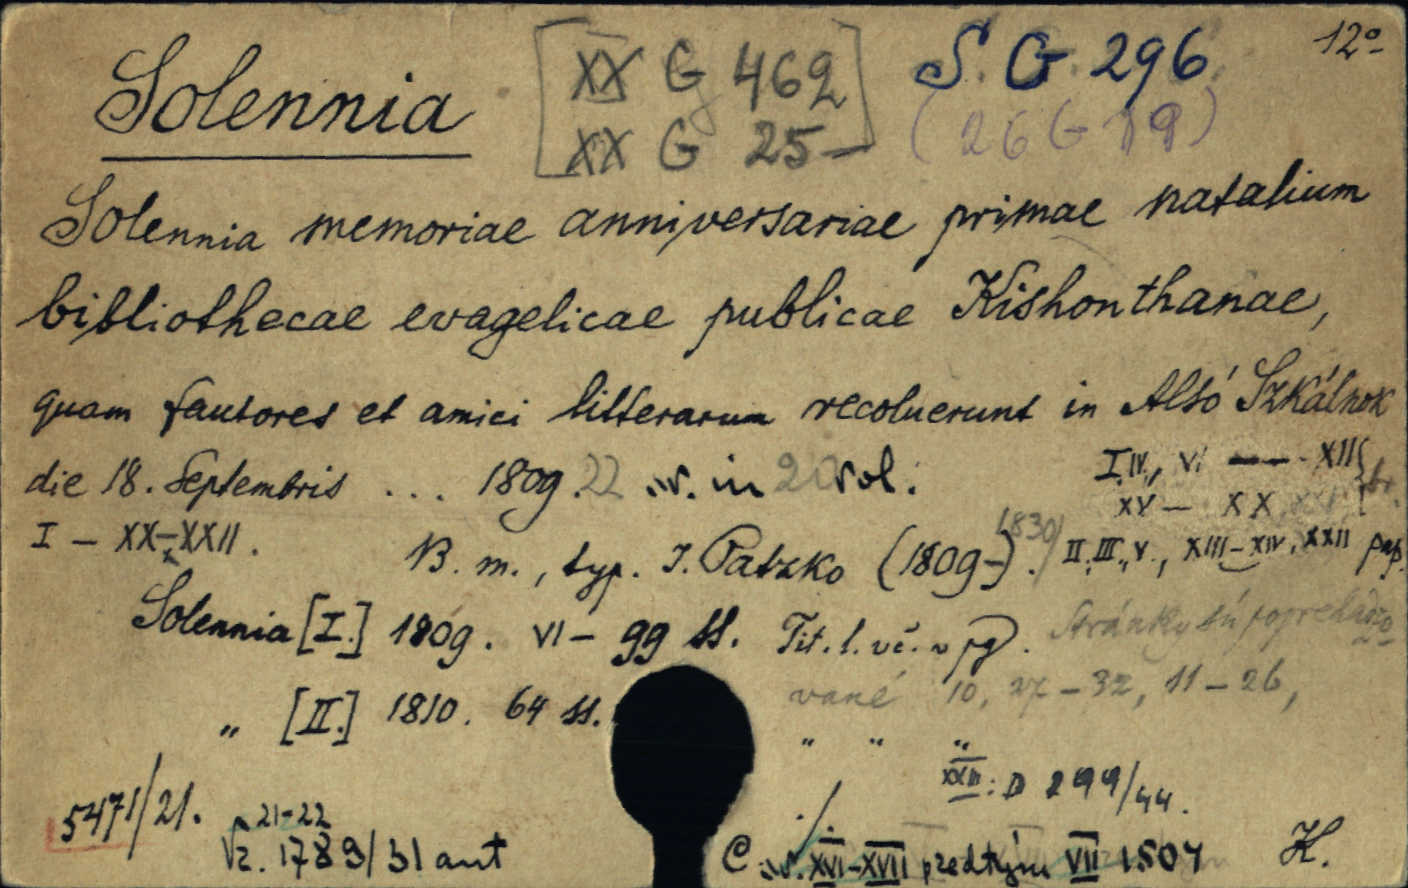 Solennia
XX G 462
XX G 25-
S. G. 296
(26 G 19)
12°
Solennia memoriae anniversariae primae natalium
bibliothecae evagelicae publicae Kishonthanae,
quam fautores et amici litterarum recoluerunt in Alsó Szkálnok
die 18. Septembris ... 1809. 22 v. in 20 vol.
I. IV., VI — - XII
XV — XX
I — XX-XXII.
B. m., typ. J. Patzko (1809-1830).
II. III., V., XIII-XIV, XXII pap.
Solennia [I.] 1809. VI — 99 ss. Tit. l. vč. v pg. Stránky sú poprehádzo-
vané 10, 27-32, 11-26,
„ [II.] 1810. 64 ss. „ „ „
XXII: D 299/44.
5471/21.
21-22
Vz. 1789/31 ant
C. v. XVI-XVII predtým VII 1504
K.